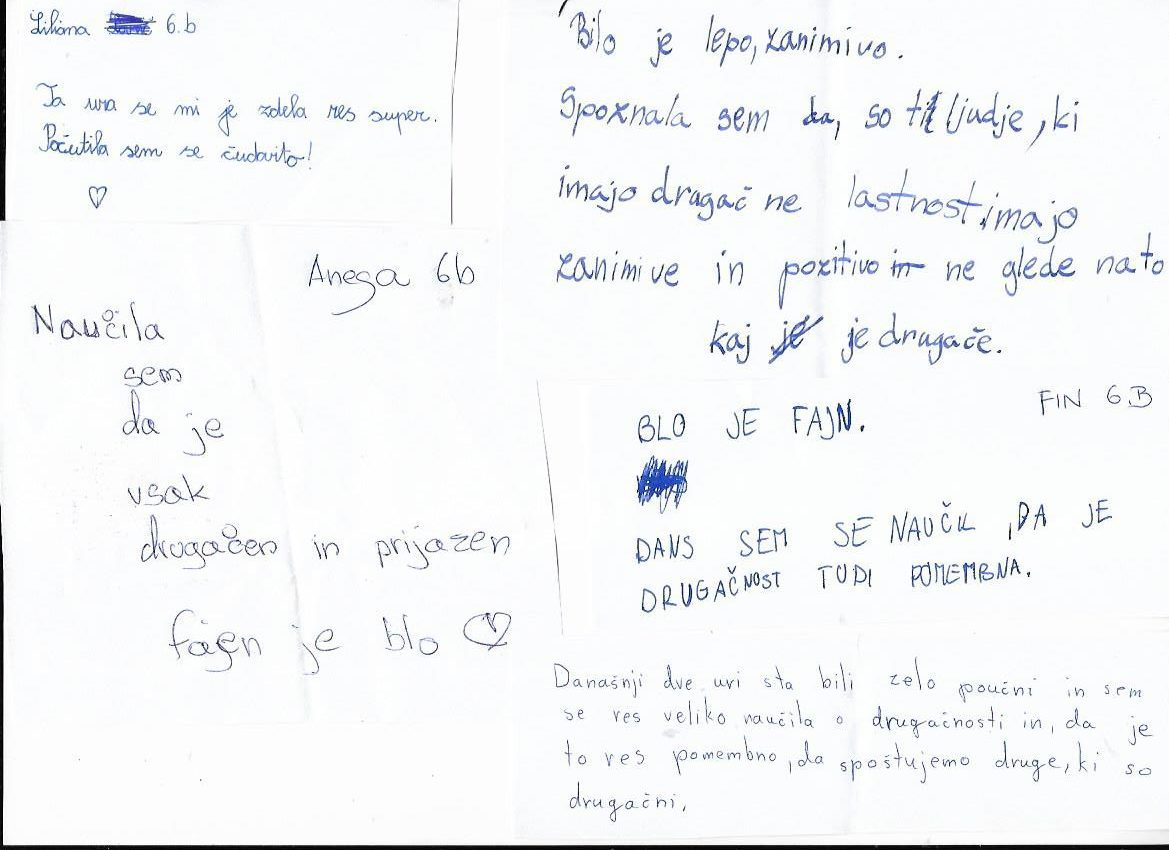 Liliana 6.b
Ta ura se mi je zdela res super.
Počutila sem se čudovito!
Bilo je lepo, zanimivo.
Spoznala sem da, so ti ljudje, ki
imajo drugač ne lastnost, imajo
zanimive in pozitivo in ne glede na to
kaj je je drugače.
Anega 6b
Naučila
sem
da je
vsak
drugačen in prijazen
fajen je blo ♡
FIN 6.B
BLO JE FAJN.
DANS SEM SE NAUČIL, DA JE
DRUGAČNOST TUDI POMEMBNA.
Današnji dve uri sta bili zelo poučni in sem
se res veliko naučila o drugačnosti in, da je
to res pomembno, da spoštujemo druge, ki so
drugačni,